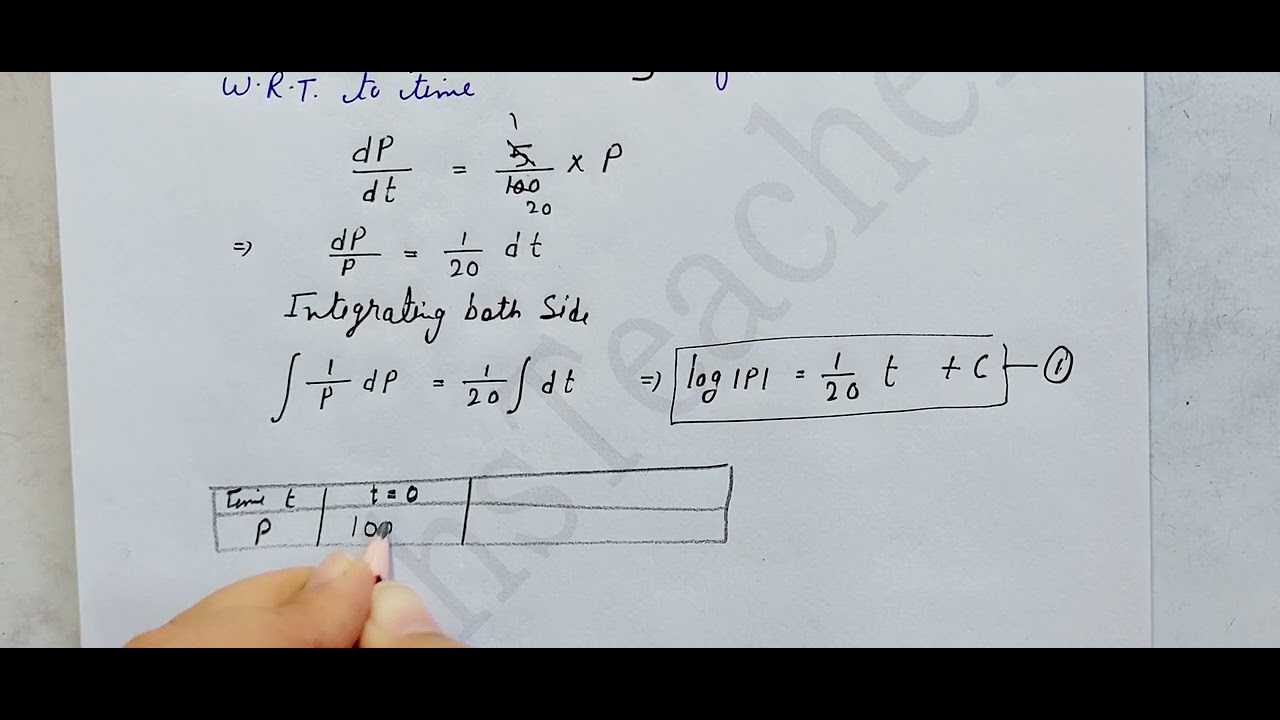 W.R.T. to time
dP/dt = 5/100 × P
1
20
=> dP/P = 1/20 dt
Integrating both Side
∫ 1/P dP = 1/20 ∫ dt => log|P| = 1/20 t + C — ①
Time t | t = 0
P | 100